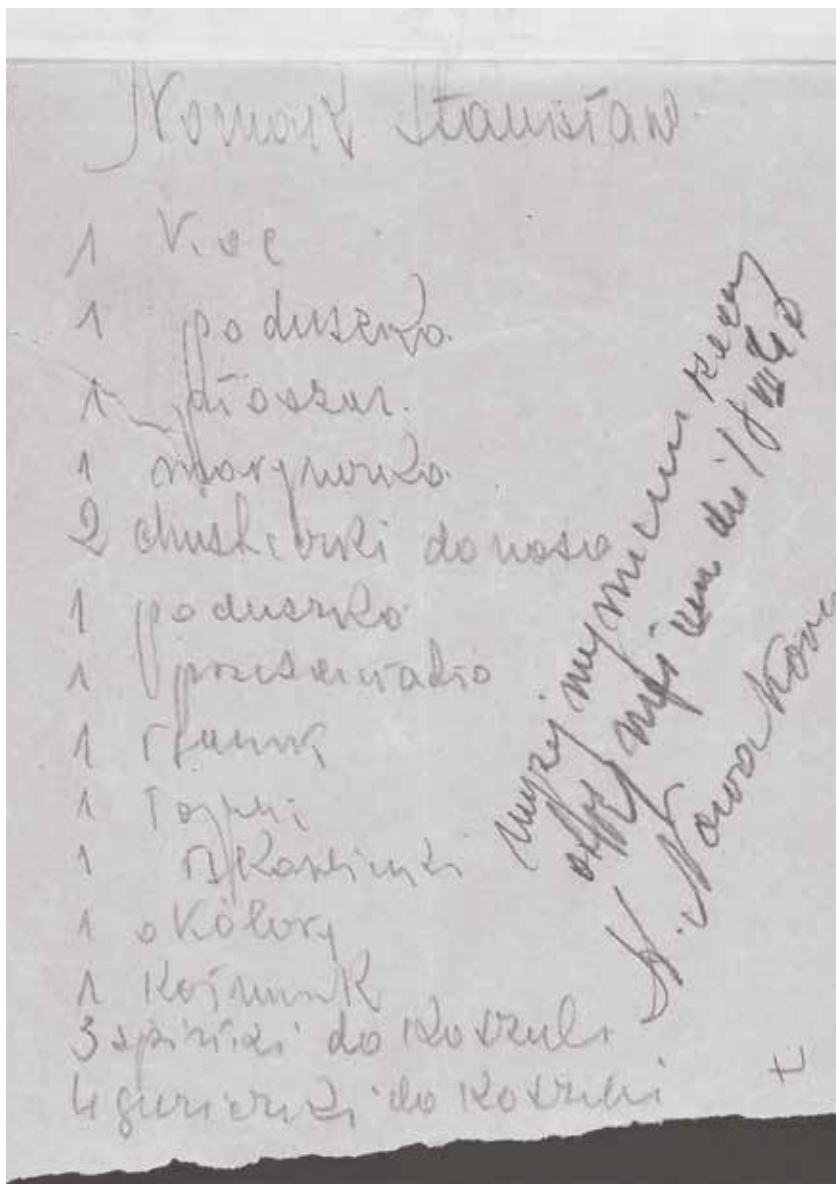 Nowak Stanisław
1 Koc
1 poduszka
1 płaszcz.
1 marynarka
2 chusteczki do nosa
1 poduszka
1 prześcieradło
1 ręcznik
1
1 rękawiczki
1 okulary
1 kołnierzyk
3 spinki do koszuli
4 guziczki do koszuli
wyżej wymienione rzeczy
mężu dn 18 VIII
St. Nowakowa